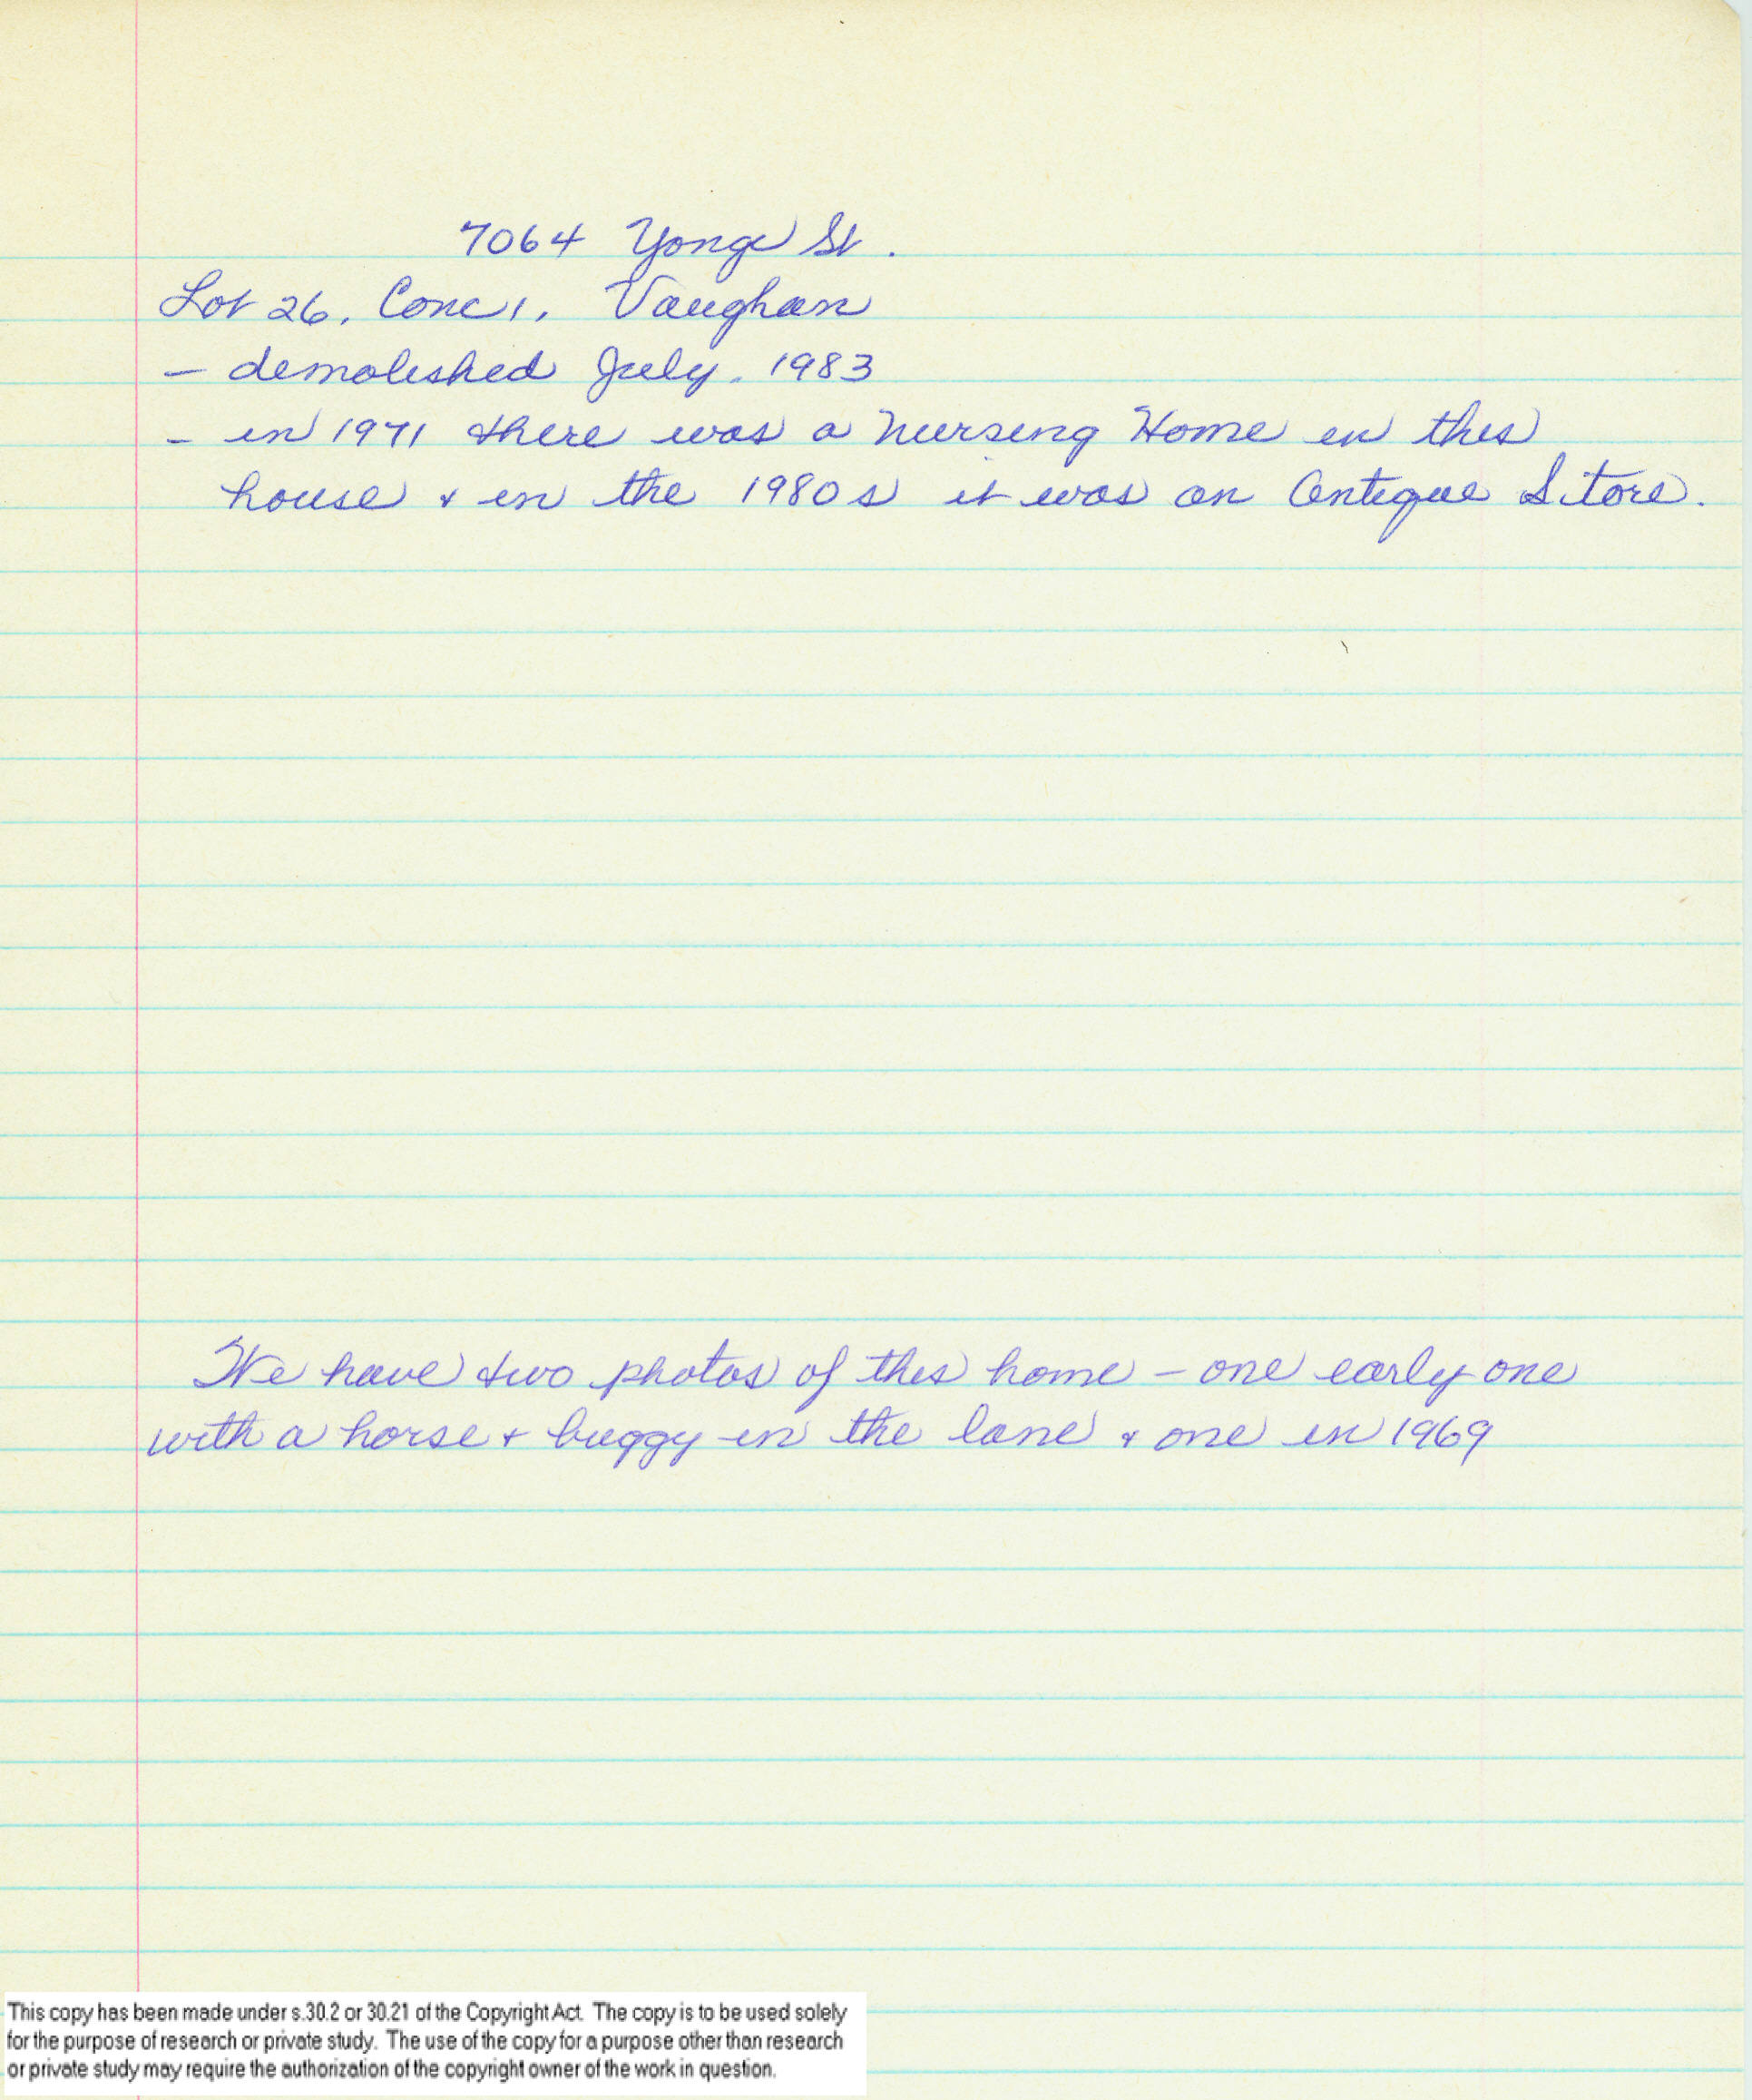 7064 Yonge St.
Lot 26, Conc 1, Vaughan
- demolished July, 1983
- in 1971 there was a Nursing Home in this
house & in the 1980s it was an Antique Store.
We have two photos of this home - one early one
with a horse & buggy in the lane & one in 1969
This copy has been made under s.30.2 or 30.21 of the Copyright Act. The copy is to be used solely
for the purpose of research or private study. The use of the copy for a purpose other than research
or private study may require the authorization of the copyright owner of the work in question.